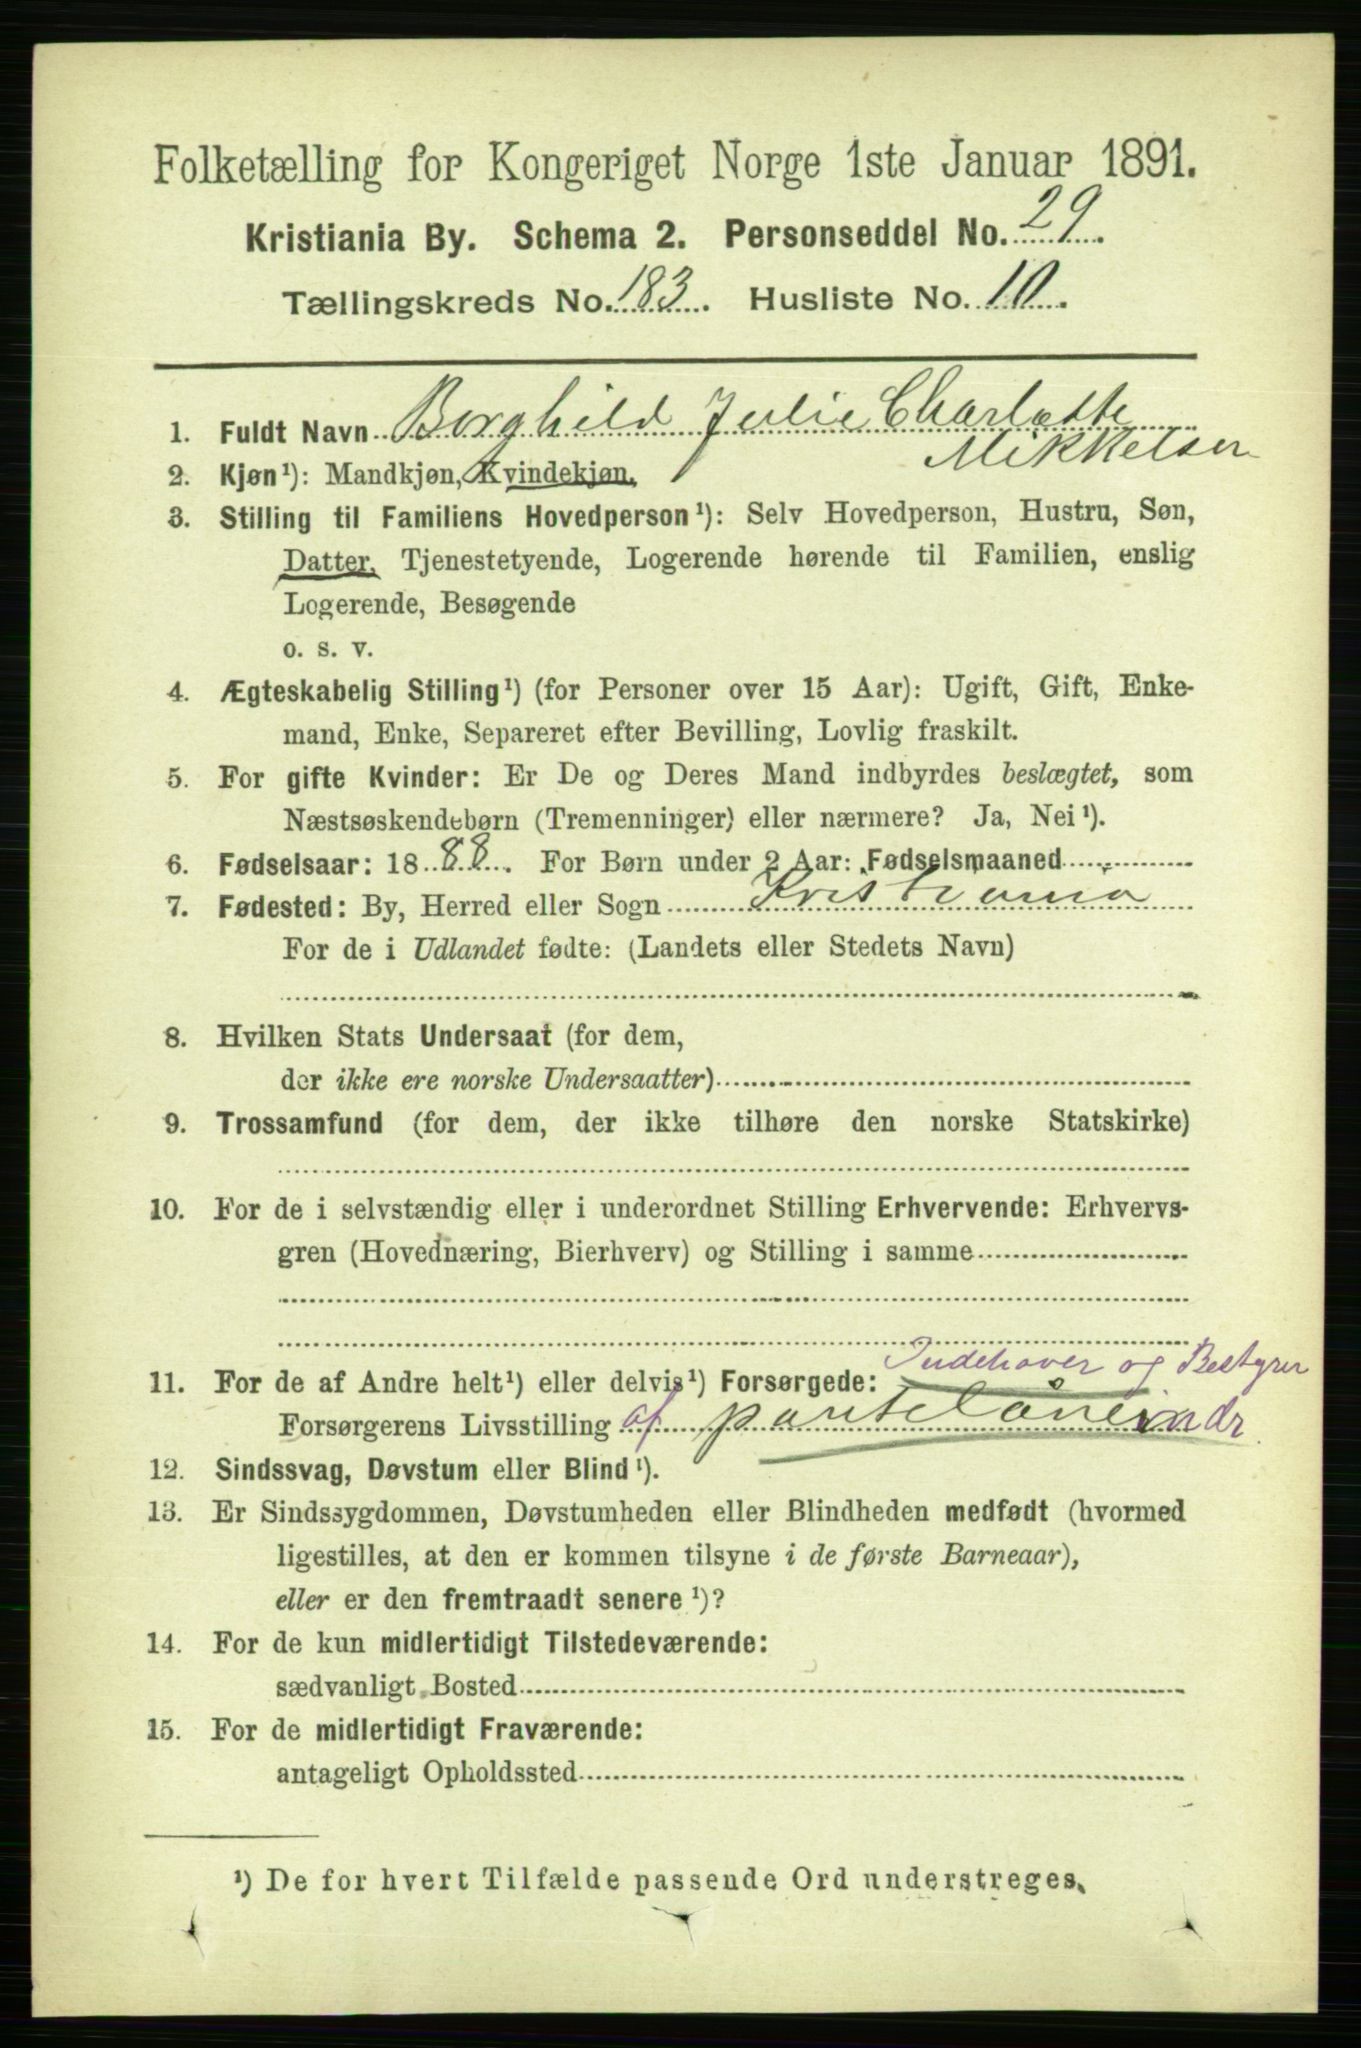 Folketælling for Kongeriget Norge 1ste Januar 1891.
Kristiania By. Schema 2. Personseddel No. 29.
Tællingskreds No. 183. Husliste No. 10.
1. Fuldt Navn Borghild Julie Charlotte
Mikkelsen
2. Kjøn¹): Mandkjøn, Kvindekjøn.
3. Stilling til Familiens Hovedperson¹): Selv Hovedperson, Hustru, Søn,
Datter, Tjenestetyende, Logerende hørende til Familien, enslig
Logerende, Besøgende
o. s. v.
4. Ægteskabelig Stilling¹) (for Personer over 15 Aar): Ugift, Gift, Enke-
mand, Enke, Separeret efter Bevilling, Lovlig fraskilt.
5. For gifte Kvinder: Er De og Deres Mand indbyrdes beslægtet, som
Næstsøskendebørn (Tremenninger) eller nærmere? Ja, Nei¹).
6. Fødselsaar: 1888. For Børn under 2 Aar: Fødselsmaaned
7. Fødested: By, Herred eller Sogn Kristiania
For de i Udlandet fødte: (Landets eller Stedets Navn)
8. Hvilken Stats Undersaat (for dem,
der ikke ere norske Undersaatter)
9. Trossamfund (for dem, der ikke tilhøre den norske Statskirke)
10. For de i selvstændig eller i underordnet Stilling Erhvervende: Erhvervs-
gren (Hovednæring, Bierhverv) og Stilling i samme
Indehaver og Bestyrer
11. For de af Andre helt¹) eller delvis¹) Forsørgede:
Forsørgerens Livsstilling af pantelåneindr
12. Sindssvag, Døvstum eller Blind¹).
13. Er Sindssygdommen, Døvstumheden eller Blindheden medfødt (hvormed
ligestilles, at den er kommen tilsyne i de første Barneaar),
eller er den fremtraadt senere¹)?
14. For de kun midlertidigt Tilstedeværende:
sædvanligt Bosted
15. For de midlertidigt Fraværende:
antageligt Opholdssted
¹) De for hvert Tilfælde passende Ord understreges.